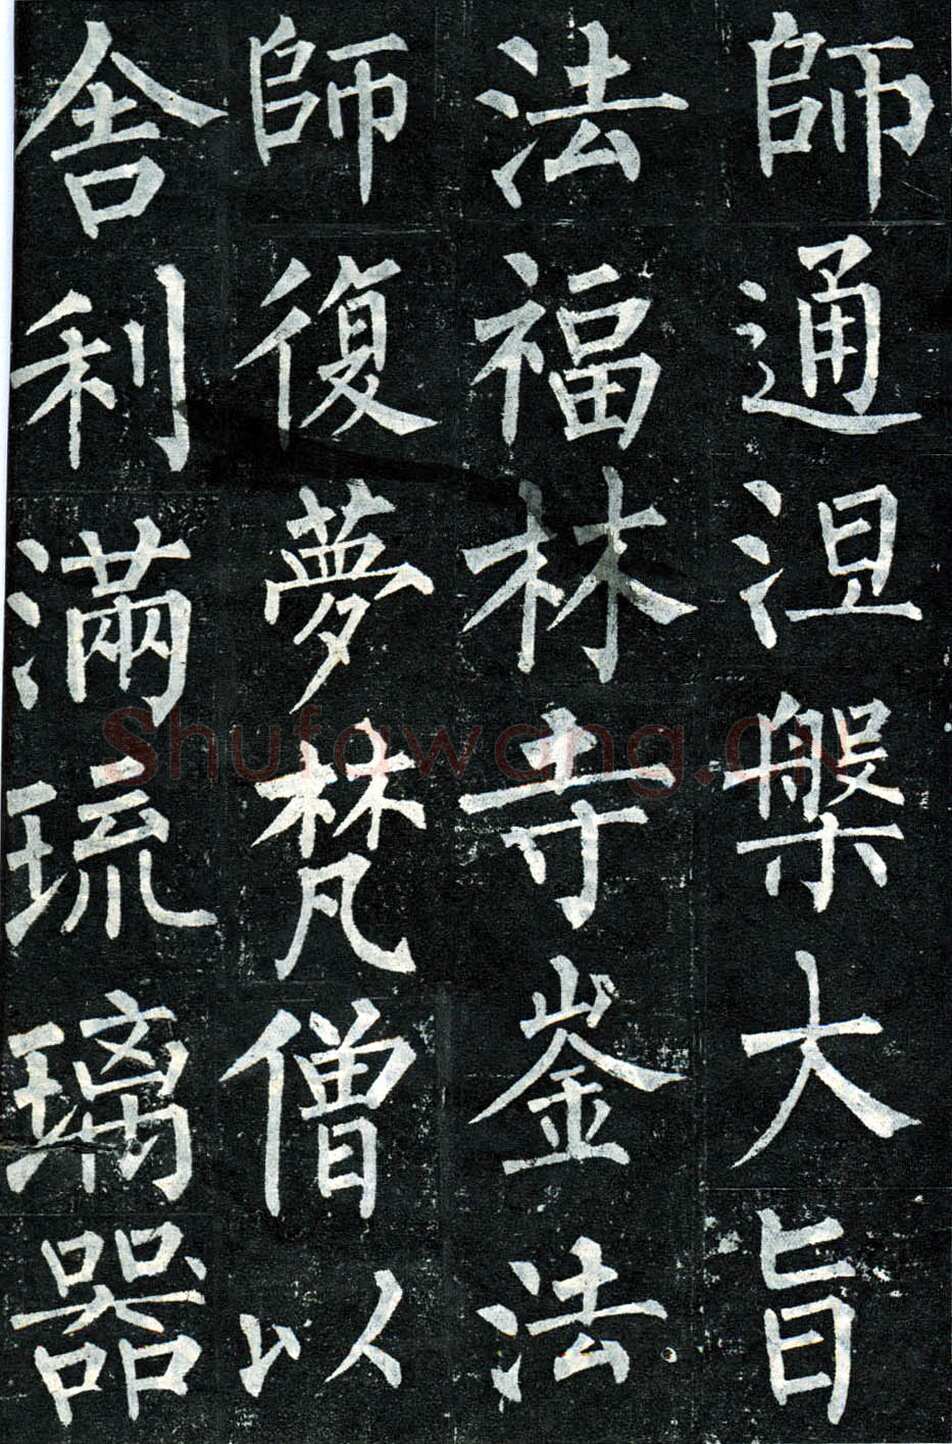 師通涅槃大旨
法福林寺崟法
師復夢梵僧以
舍利滿琉璃器
Shufawang.cn